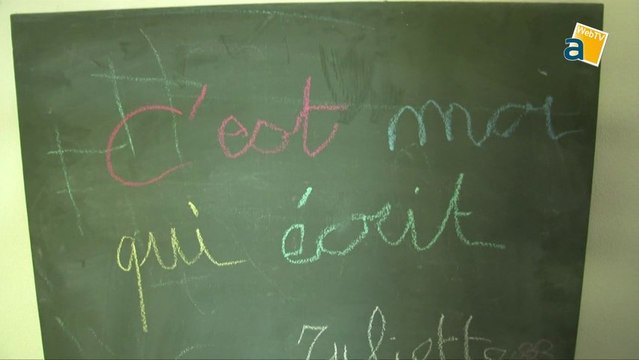 WebTV
a
C'est moi
qui écrit
Juliette